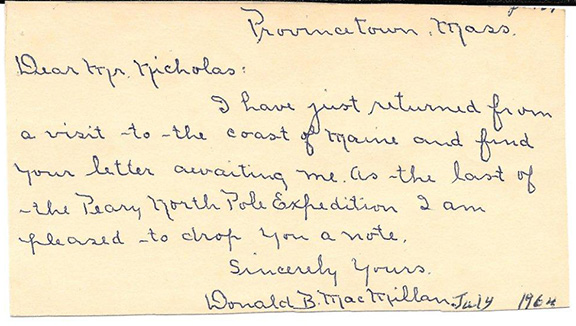 Provincetown, Mass.
Dear Mr. Nicholas:
I have just returned from
a visit to the coast of Maine and find
your letter awaiting me. As the last of
the Peary North Pole Expedition I am
pleased to drop you a note.
Sincerely Yours.
Donald B. MacMillan. July 1964